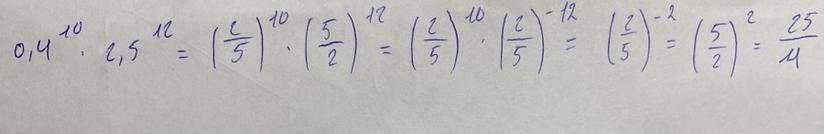 0,4^10 · 2,5^12 = (2/5)^10 · (5/2)^12 = (2/5)^10 · (2/5)^-12 = (2/5)^-2 = (5/2)^2 = 25/4